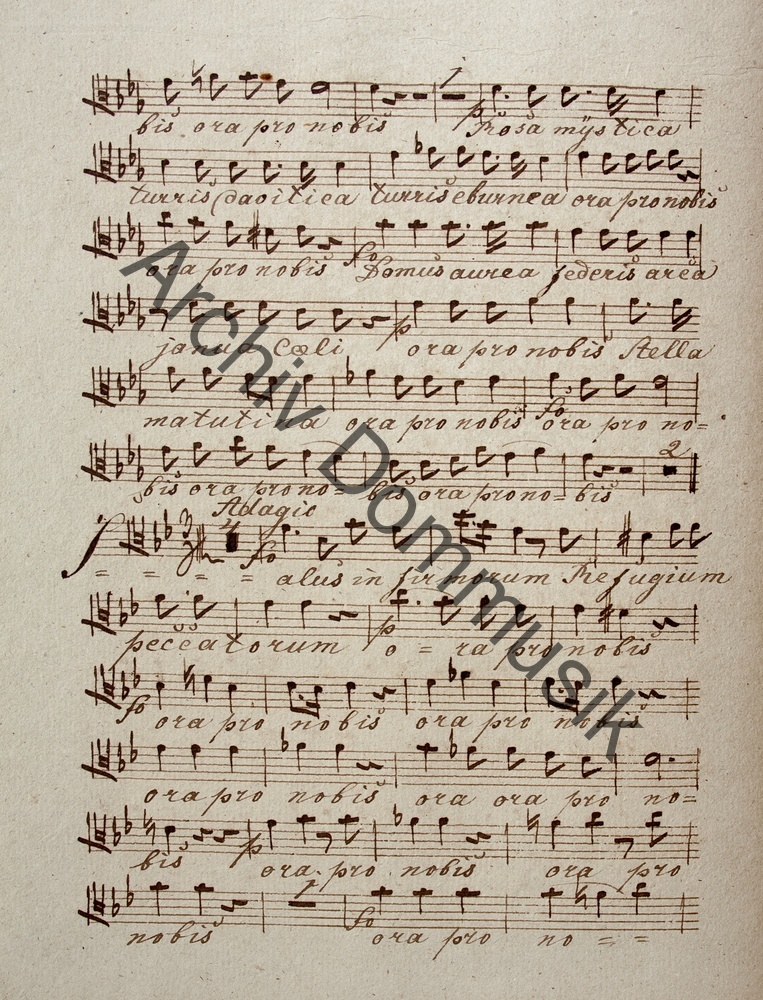 1
bis ora pro nobis p Rosa mÿstica
turris Davitica turris eburnea ora pro nobis
ora pro nobis fo Domus aurea federis arca
janua Cœli p ora pro nobis Stella
matutina ora pro nobis fo ora pro no=
2
bis ora pro no= bis ora pro no= bis
Adagio
3
4
= = = = fo Salus in firmorum Refugium
peccatorum p o = ra pro nobis
fo ora pro nobis ora pro nobis
ora pro nobis ora ora pro no=
bis p ora pro nobis ora pro
1
nobis fo ora pro no = =
Archiv Dommusik